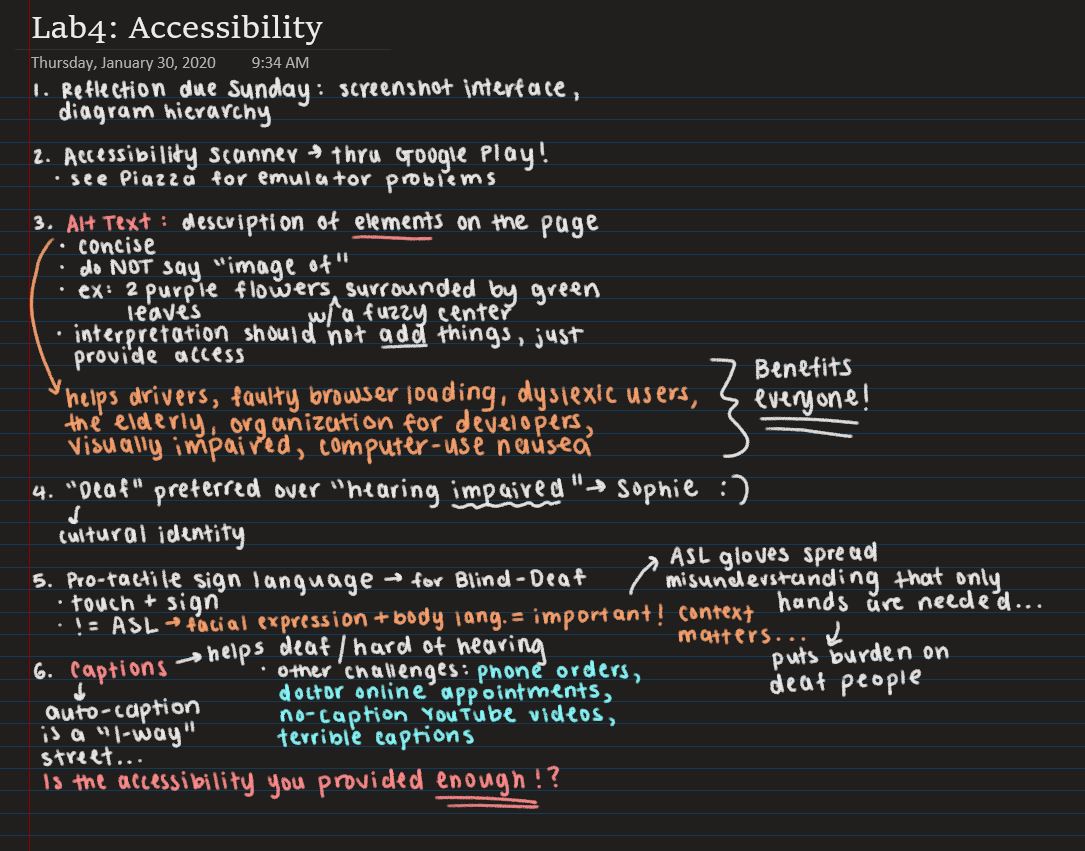 Lab4: Accessibility
Thursday, January 30, 2020 9:34 AM
1. Reflection due Sunday: screenshot interface,
diagram hierarchy
2. Accessibility Scanner → thru Google Play!
· see Piazza for emulator problems
3. Alt Text: description of elements on the page
· concise
· do NOT say "image of"
· ex: 2 purple flowers ^ surrounded by green
leaves w/a fuzzy center
· interpretation should not add things, just
provide access
helps drivers, faulty browser loading, dyslexic users,
the elderly, organization for developers,
visually impaired, computer-use nausea
Benefits
everyone!
4. "Deaf" preferred over "hearing impaired" → Sophie :)
↓
cultural identity
5. Pro-tactile sign language → for Blind-Deaf
· touch + sign
· != ASL → facial expression + body lang. = important! context
matters...
ASL gloves spread
misunderstanding that only
hands are needed...
↓
puts burden on
deaf people
6. Captions → helps deaf/hard of hearing
· other challenges: phone orders,
doctor online appointments,
no-caption YouTube videos,
terrible captions
↓
auto-caption
is a "1-way"
street...
Is the accessibility you provided enough!?